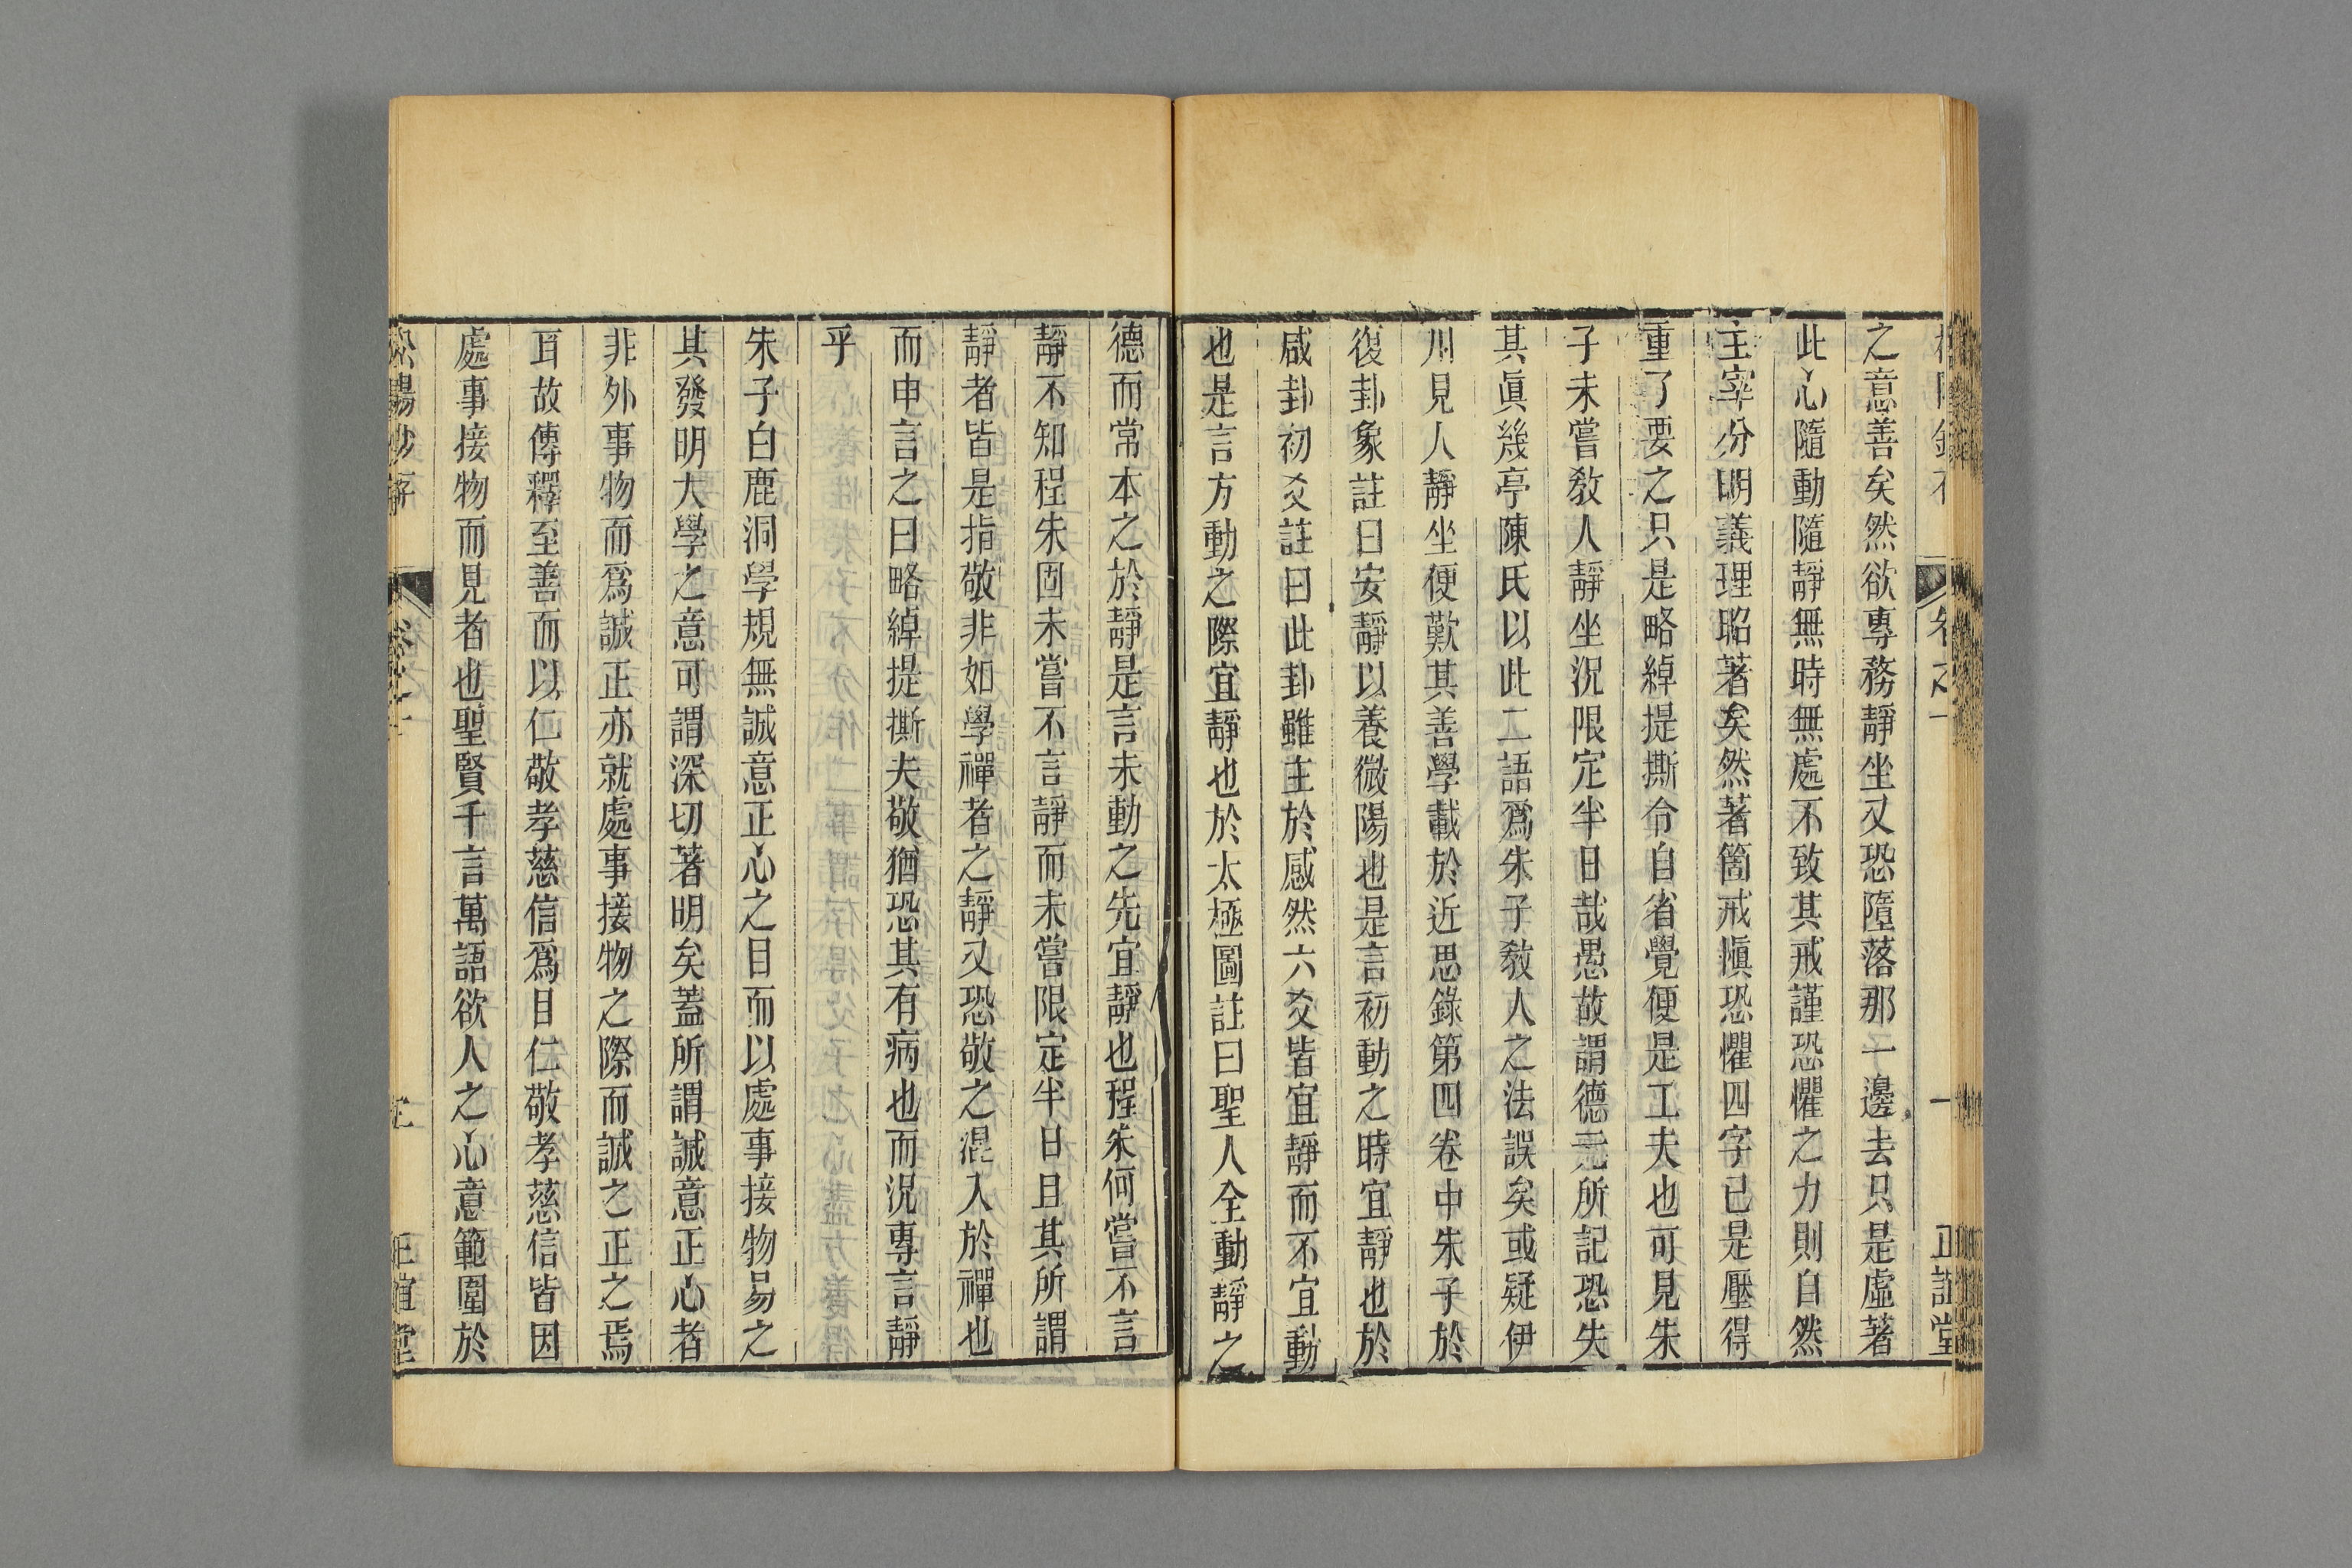 之意善矣然欲專務靜坐又恐墮落那一邊去只是虛著
此心隨動隨靜無時無處不致其戒謹恐懼之力則自然
主宰分明義理昭著矣然著箇戒愼恐懼四字已是壓得
重了要之只是略綽提撕令自省覺便是工夫也可見朱
子未嘗敎人靜坐況限定半日哉愚故謂德元所記恐失
其眞幾亭陳氏以此二語爲朱子敎人之法誤矣或疑伊
川見人靜坐便歎其善學載於近思錄第四卷中朱子於
復卦象註曰安靜以養微陽也是言初動之時宜靜也於
咸卦初爻註曰此卦雖主於感然六爻皆宜靜而不宜動
也是言方動之際宜靜也於太極圖註曰聖人全動靜之
德而常本之於靜是言未動之先宜靜也程朱何嘗不言
靜不知程朱固未嘗不言靜而未嘗限定半日且其所謂
靜者皆是指敬非如學禪者之靜又恐敬之混入於禪也
而申言之曰略綽提撕夫敬猶恐其有病也而況專言靜
乎
朱子白鹿洞學規無誠意正心之目而以處事接物易之
其發明大學之意可謂深切著明矣蓋所謂誠意正心者
非外事物而爲誠正亦就處事接物之際而誠之正之焉
耳故傳釋至善而以仁敬孝慈信爲目仁敬孝慈信皆因
處事接物而見者也聖賢千言萬語欲人之心意範圍於